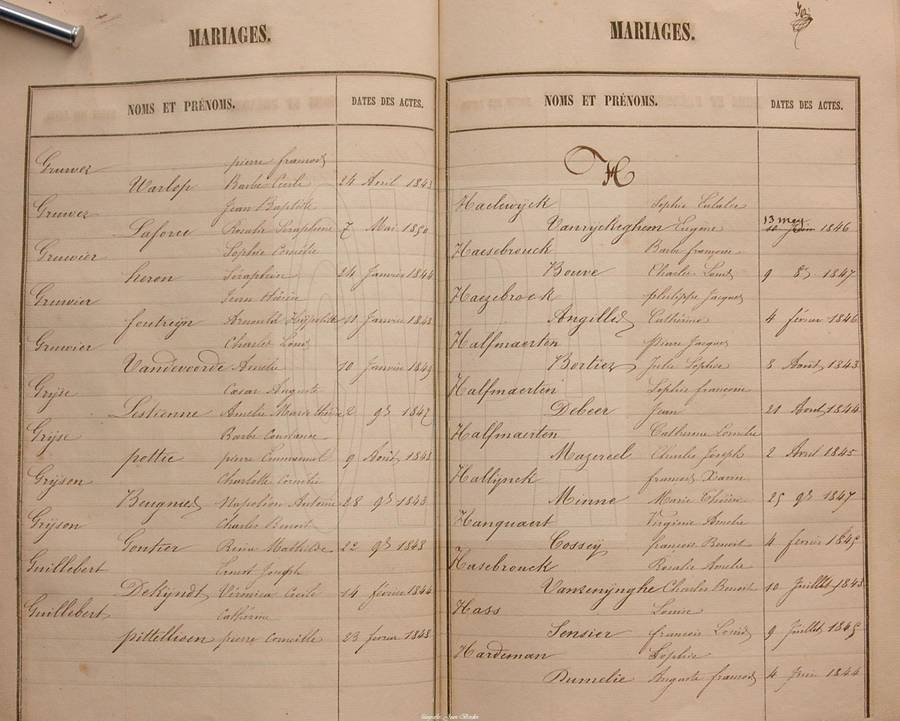 MARIAGES.
NOMS ET PRÉNOMS. DATES DES ACTES.
Gruwez pierre francois
Warlop Barbe Cecile 24 Avril 1843
Gruwez Jean Baptiste
Laforce Rosalie Séraphine 7 Mai 1850
Gruwier Sophie Emélie
heron Séraphin 24 Janvier 1844
Gruwier
foutreyn Arnould Hippolite 11 Janvier 1843
Gruwier Charles Louis
Vandevoorde Amelie 10 Janvier 1849
Gryse Cesar Auguste
Lestienne Amelie Marie 2 9re 1847
Gryse Barbe Constance
pottie pierre Emmanuel 9 Août 1843
Gryson Charlotte Cornélie
Beugnies Napoléon Antoine 28 9re 1843
Gryson Charles Benoit
Gontier Reine Mathilde 22 9re 1848
Guillebert Ernest Joseph
Dekyndt Virginica Cecile 14 février 1844
Guillebert Cathérine
pittellioen pierre Corneille 23 fevrier 1848
MARIAGES.
NOMS ET PRÉNOMS. DATES DES ACTES.
H
Haelewyck Sophie Eulalie
Vanryckeghem Eugene 13 mars 1846
Haesebrouck Barbe francoise
Bouve Charles Louis 9 8re 1847
Haezebrock philippe Jacques
Angillis Cathérine 4 février 1846
Halfmaerten Pierre Jacques
Bortier Julie Sophie 8 Août 1843
Halfmaerten Sophie francoise
Debeer Jean 21 Août 1844
Halfmaerten Catherine
Mazereel Charles Joseph 2 Avril 1845
Hallynck francois Xavier
Minne Marie Thérèse 25 9re 1847
Hanquaert Virginie Amelie
Cossey francois Benoit 4 fevrier 1845
Hasebrouck Rosalie Amelie
Vansenynghe Charles Benoit 10 Juillet 1843
Hass Louise
Sensier francois Louis 9 Juillet 1845
Hardeman Sophie
Dumelie Auguste francois 4 Juin 1844